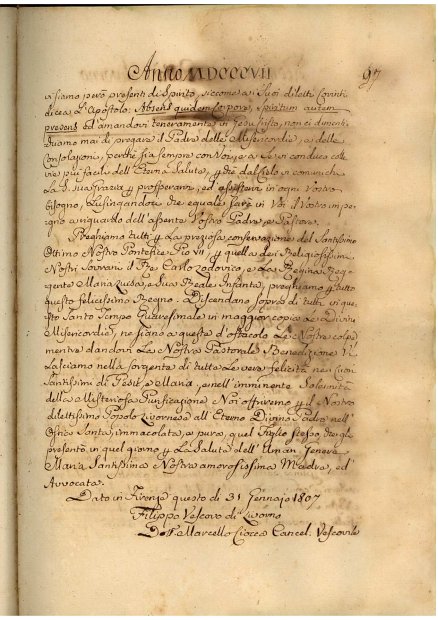 Anno MDCCCVII
97
vi siamo però presenti di Spirito, siccome a i Suoi diletti Corinti
dicea L'Apostolo: Absens quidem corpore, spiritum autem
presens ed amandovi teneramente in Jesu Cristo, non ci dimenti
chiamo mai di pregare il Padre delle Misericordie, e delle
Consolazioni, perché sia sempre con Voi, e a Se vi conduca colle
vie più facili dell'Eterna Salute, che dal Cielo vi comunichi
La Sua Grazia, prosperarvi, ed assistervi in ogni Vostro
bisogno, Lusingandoci che eguale sarà in Voi
a riguardo dell'assente Vostro Padre, e Pastore.
Preghiamo tutti La preziosa conservazione del Santissimo
Ottimo Nostro Pontefice Pio VII, quella dei Religiosissimi
Nostri Sovrani il Re Carlo Lodovico, e La Regina Reg-
gente Maria Luisa, e Sua Reale Infanta, preghiamo tutto
questo felicissimo Regno. Discendano sopra di tutti in que
sto Santo Tempo in maggior copia Le Divine
Misericordie, ne siano a queste d'ostacolo Le Nostre colpe
mentre dandovi La Nostra Pastorale Benedizione Vi
Lasciamo nella sorgente di tutta La vera felicità nei Cuori
Santissimi di Gesù, e Maria, e nell'imminente Solennità
della Misteriosa Purificazione Noi offriremo il Nostro
dilettissimo Popolo Livornese all'Eterno Divino Padre nell'
Ostia Santa, immacolata, e pura, quel Figlio stesso che gli
presentò in quel giorno La Salute dell'Uman Genere
Maria Santissima Nostra amorosissima Madre, ed
Avvocata.
Dato in Firenze questo dì 31 Gennajo 1807
Filippo Vescovo di Livorno
Marcello Ciocca Cancel. Vescovile